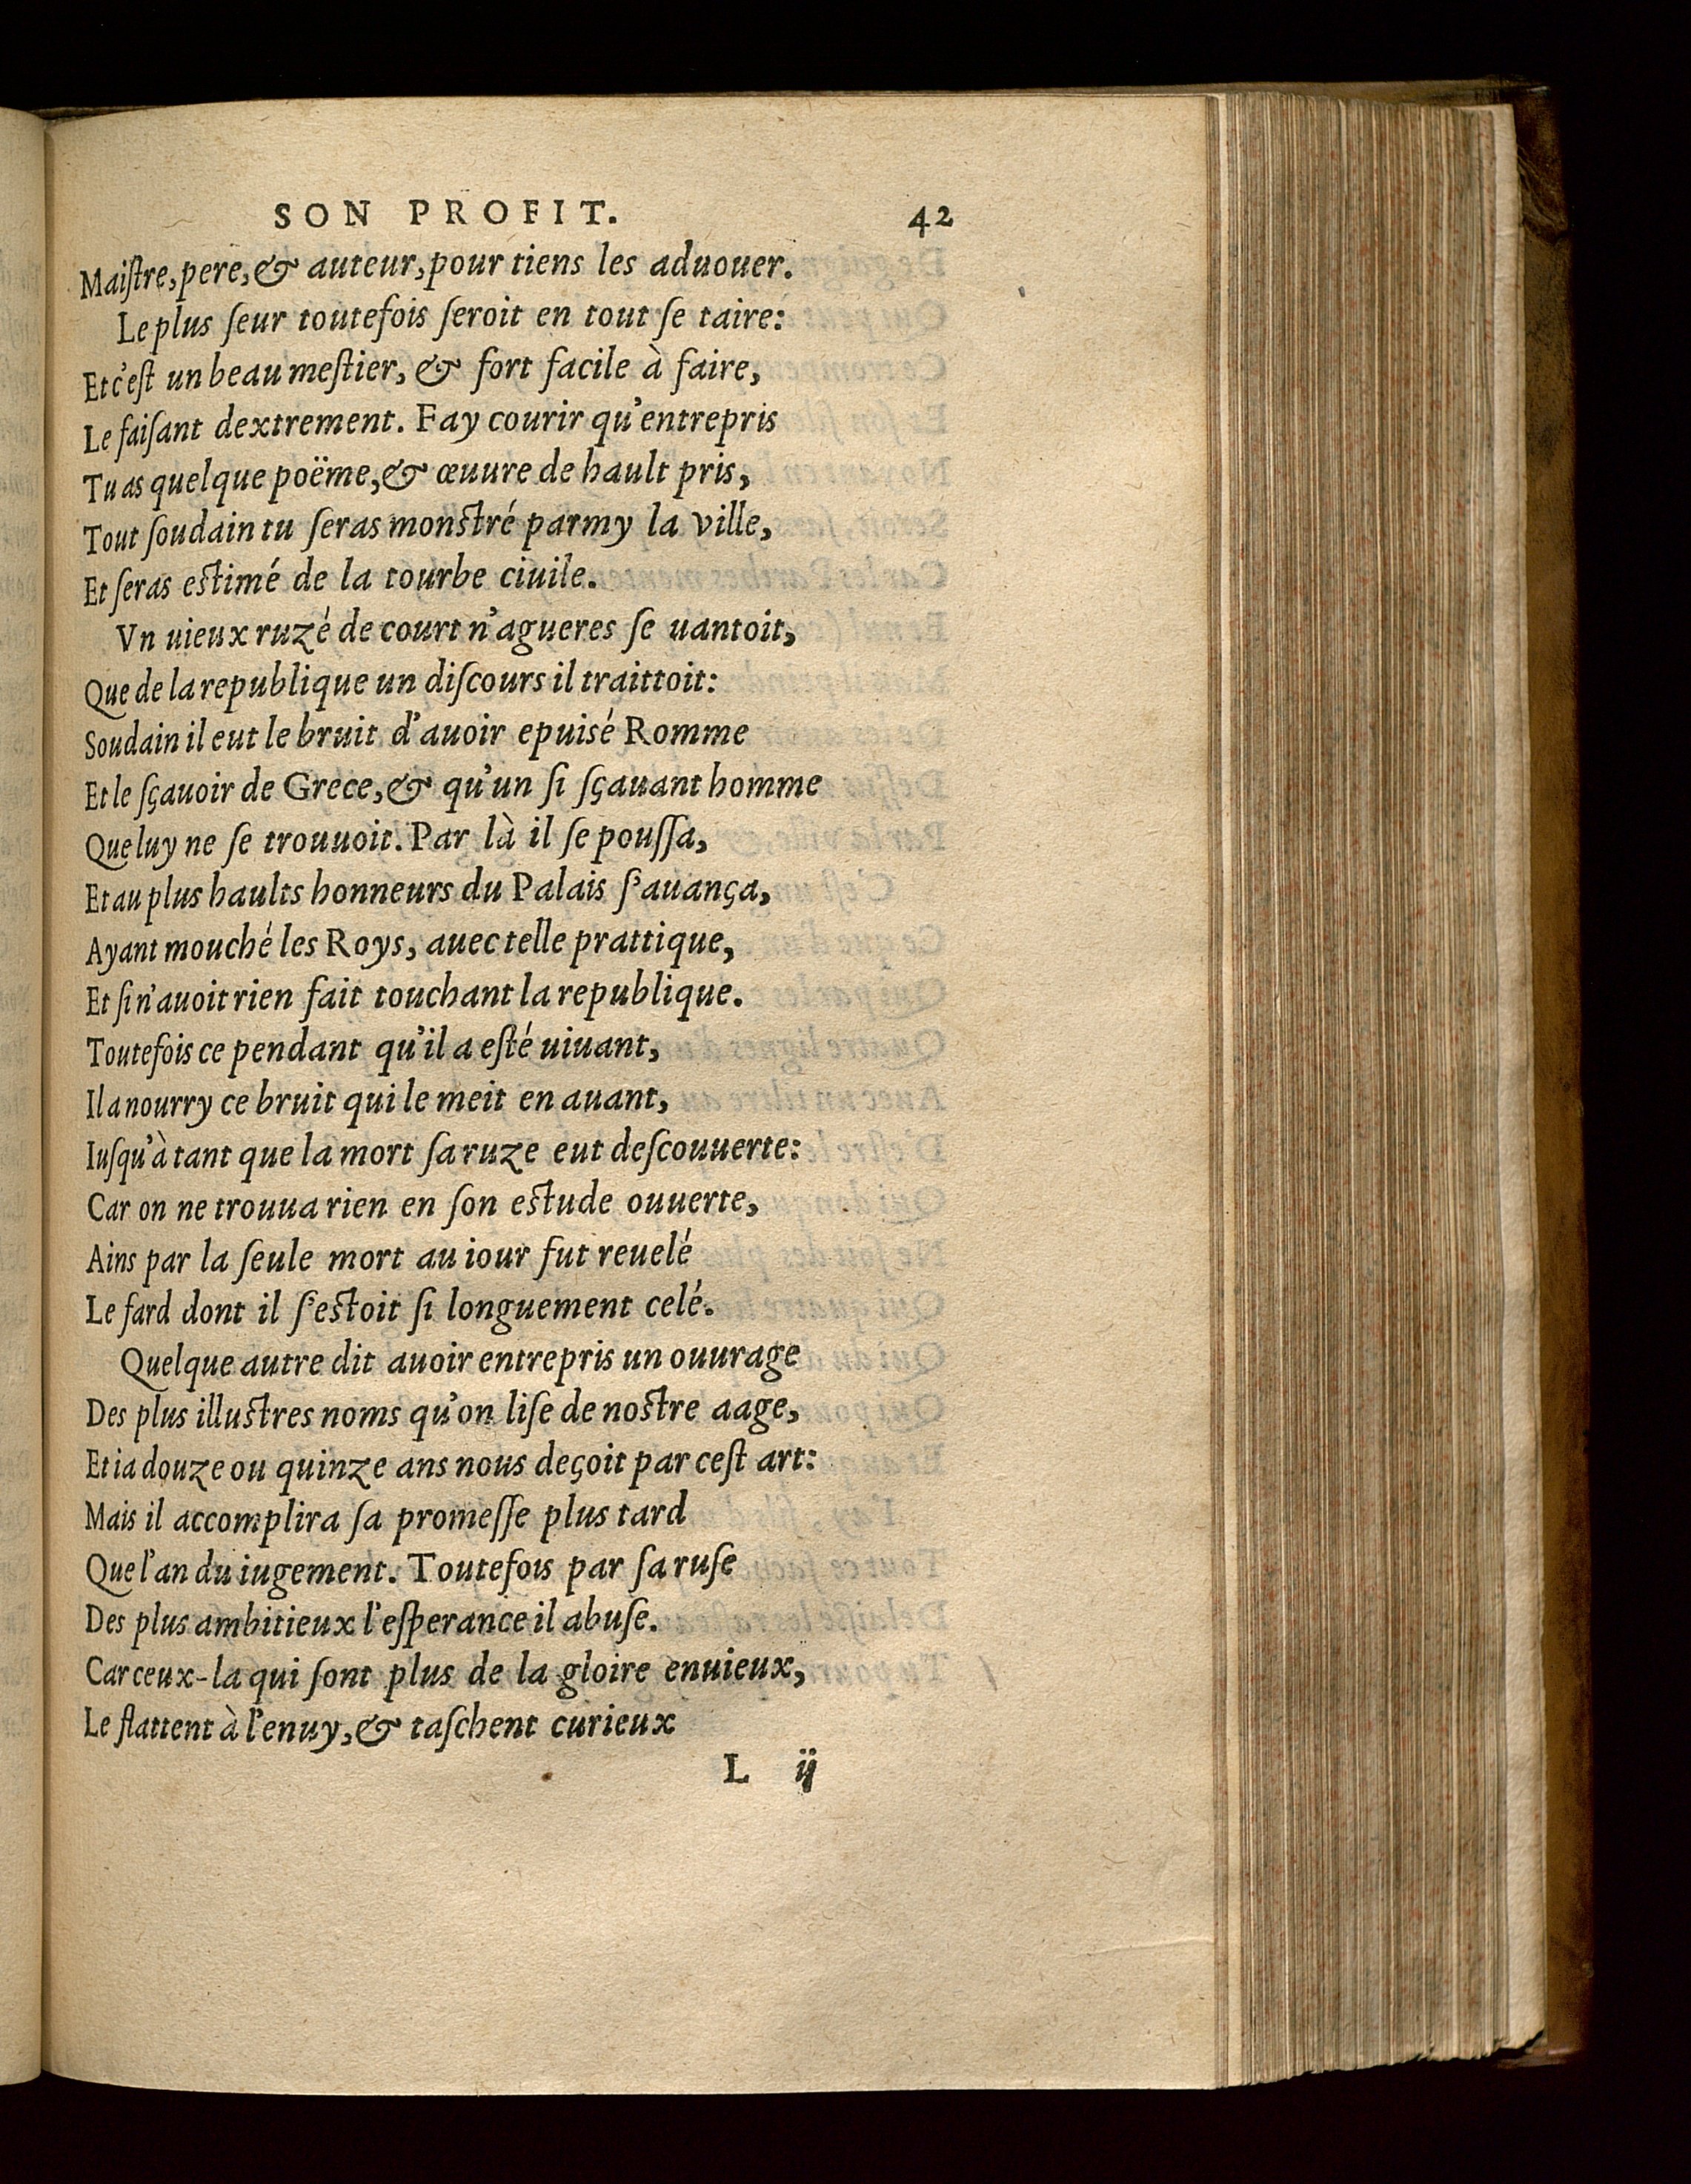 SON PROFIT. 42
Maiſtre, pere, & auteur, pour tiens les aduouer.
Le plus ſeur toutefois ſeroit en tout ſe taire:
Et c'eſt un beau meſtier, & fort facile à faire,
Le faiſant dextrement. Fay courir qu'entrepris
Tu as quelque poëme, & œuure de hault pris,
Tout ſoudain tu ſeras monſtré parmy la ville,
Et ſeras eſtimé de la tourbe ciuile.
Vn uieux ruzé de court n'agueres ſe uantoit,
Que de la republique un diſcours il traittoit:
Soudain il eut le bruit d'auoir epuisé Romme
Et le ſçauoir de Grece, & qu'un ſi ſçauant homme
Que luy ne ſe trouuoit. Par là il ſe pouſſa,
Et au plus haults honneurs du Palais ſ'auança,
Ayant mouché les Roys, auec telle prattique,
Et ſi n'auoit rien fait touchant la republique.
Toutefois ce pendant qu'il a eſté uiuant,
Il a nourry ce bruit qui le meit en auant,
Iuſqu'à tant que la mort ſa ruze eut deſcouuerte:
Car on ne trouua rien en ſon eſtude ouuerte,
Ains par la ſeule mort au iour fut reuelé
Le fard dont il ſ'eſtoit ſi longuement celé.
Quelque autre dit auoir entrepris un ouurage
Des plus illuſtres noms qu'on liſe de noſtre aage,
Et ia douze ou quinze ans nous deçoit par ceſt art:
Mais il accomplira ſa promeſſe plus tard
Que l'an du iugement. Toutefois par ſa ruſe
Des plus ambitieux l'eſperance il abuſe.
Car ceux-la qui ſont plus de la gloire enuieux,
Le flattent à l'enuy, & taſchent curieux
L ij